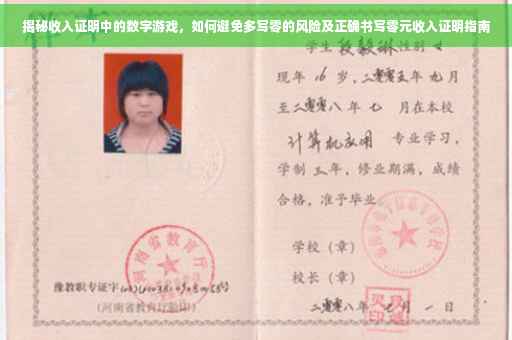 揭秘收入证明中的数字游戏，如何避免多写零的风险及正确书写零元收入证明指南
学生 段毅琳 性别 女
现年 16 岁，二零零五年 九月
至二零零八年 七 月在本校
计算机应用 专业学习，
学制 三年，修业期满，成绩
合格，准予毕业
学校（章）
校长（章）
河南省教育厅
豫教职专证字
（河南省教育厅验印）
二零零八年 月 一 日